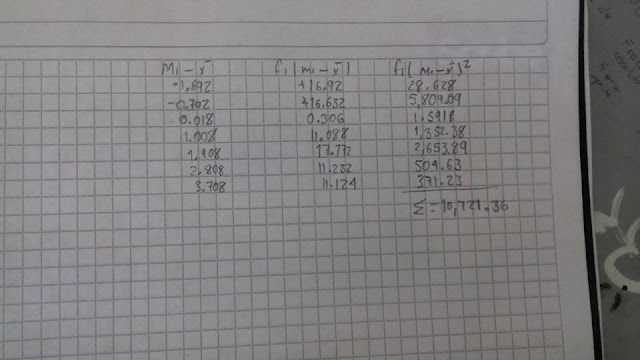 Mi - x̄ fi | mi - x̄ | fi ( mi - x̄ )²
-1.692 +16.92 28.628
-0.792 +16.632 5,809.09
0.018 0.306 1.5918
1.008 11.088 1,352.38
1.908 17.172 2,653.89
2.808 11.232 504.63
3.708 11.124 371.23
Σ = 10,721.36